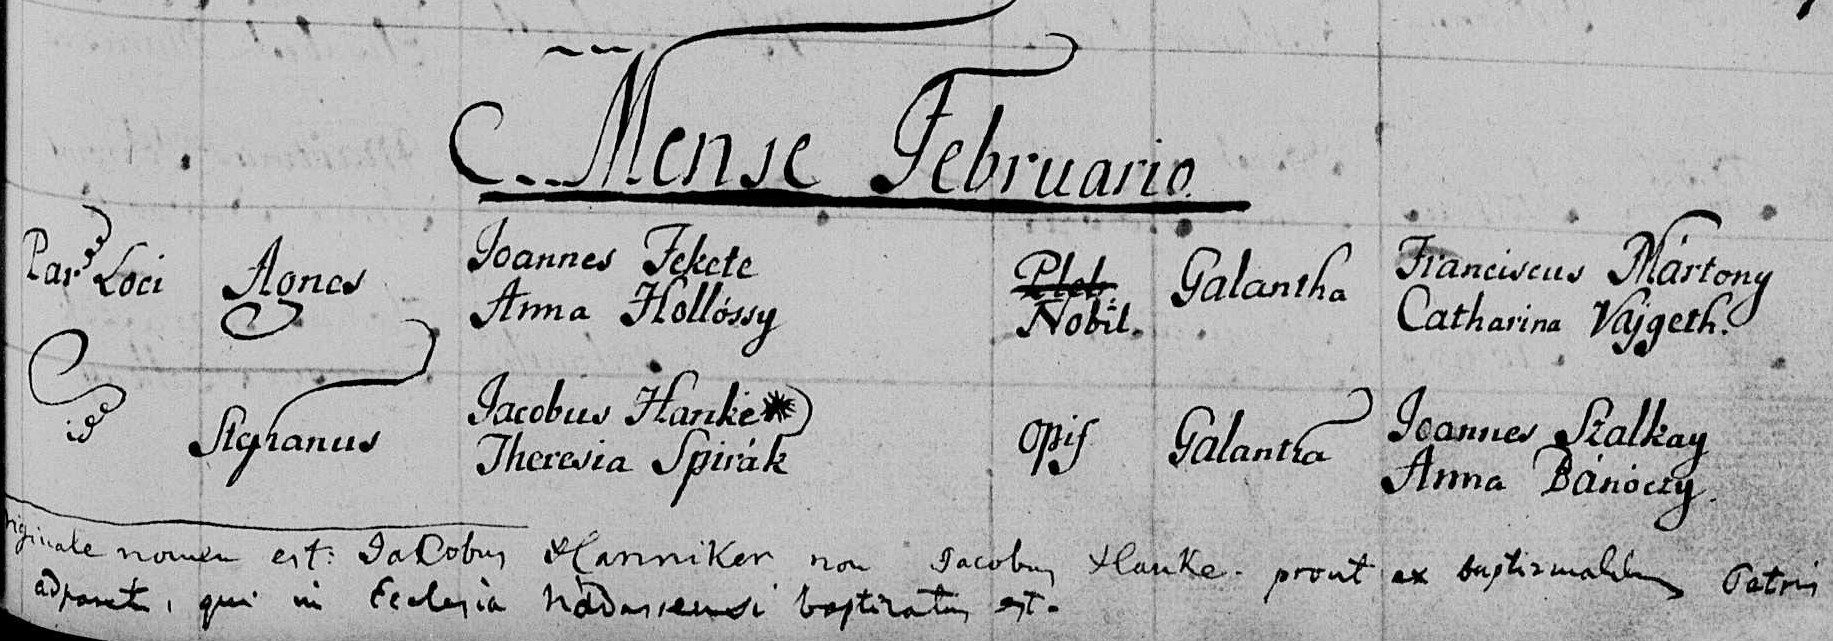 Mense Februario.
Par Loci Agnes Joannes Fekete Pleb. Galantha Franciscus Mártony
Anna Hollóssy Nobil. Catharina Vajgeth.
Stephanus Jacobus Hanke Opif Galantha Joannes Szalkay
Theresia Spirák Anna Bánóczy.
originale nomen est: Jacobus Hanniker non Jacobus Hanke. prout ex baptismalibus Patris
adparet, qui in Ecclesia Nádassensi baptizatus est.